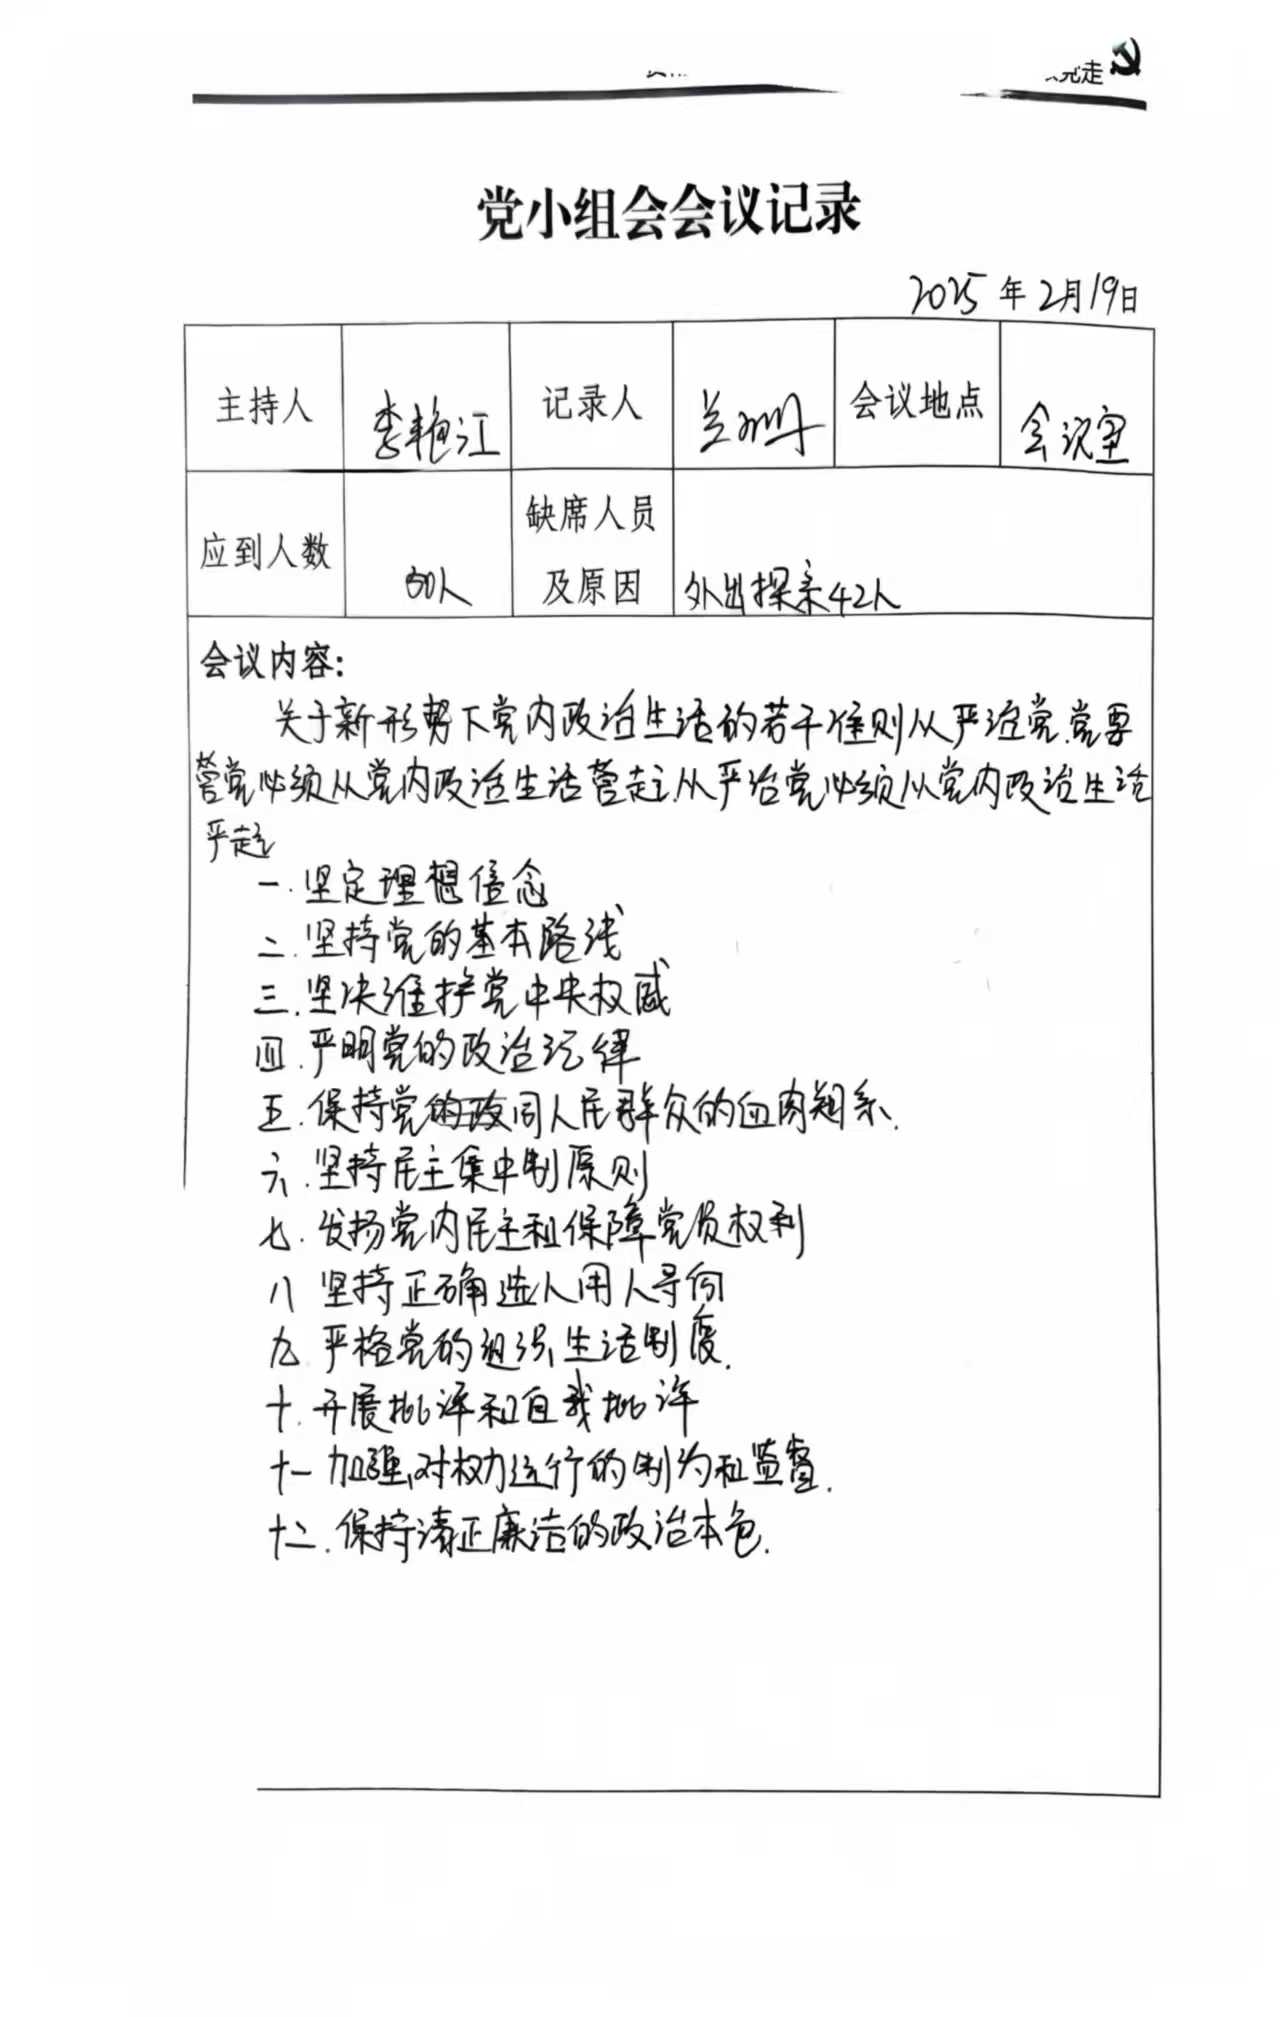 党走
党小组会会议记录
2025年2月19日
主持人 李艳江 记录人 会议地点 会议室
应到人数 人 缺席人员及原因 外出探亲42人
会议内容:
关于新形势下党内政治生活的若干准则从严治党.党要
管党必须从党内政治生活管起.从严治党必须从党内政治生活
严起
一.坚定理想信念
二.坚持党的基本路线
三.坚决维护党中央权威
四.严明党的政治纪律
五.保持党同人民群众的血肉联系.
六.坚持民主集中制原则
七.发扬党内民主和保障党员权利
八 坚持正确选人用人导向
九.严格党的组织生活制度.
十.开展批评和自我批评
十一加强对权力运行的制约和监督.
十二.保持清正廉洁的政治本色.